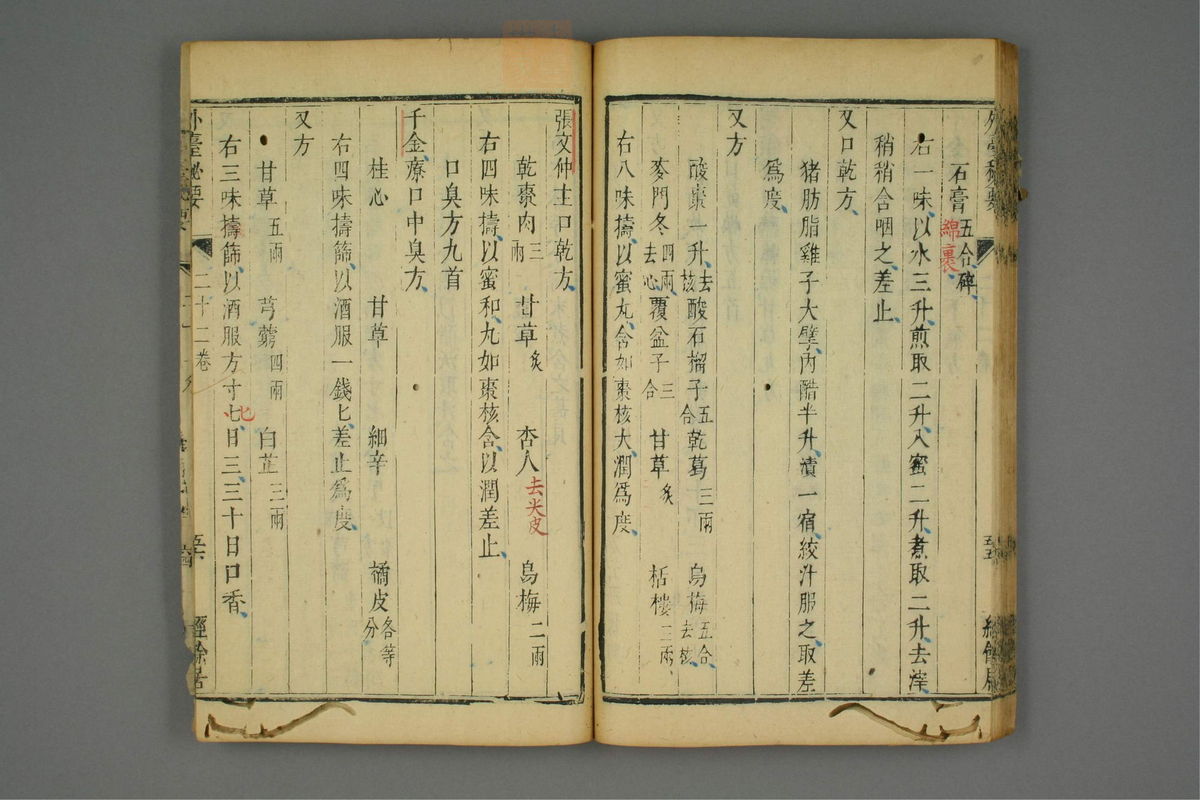 石膏五合碎綿裹
右一味以水三升煎取二升入蜜二升煮取二升去滓
稍稍含咽之差止
又口乾方
猪肪脂雞子大擘內醋半升漬一宿絞汁服之取差
為度
又方
酸棗一升去核酸石榴子五合乾葛三兩烏梅五合去核
麥門冬四兩去心覆盆子三合甘草炙栝樓三兩
右八味擣以蜜丸含如棗核大潤為度
張文仲主口乾方
乾棗肉三兩甘草炙杏人去尖皮烏梅二兩
右四味擣以蜜和丸如棗核含以潤差止
口臭方九首
千金療口中臭方
桂心甘草細辛橘皮各等分
右四味擣篩以酒服一錢匕差止為度
又方
甘草五兩芎藭四兩白芷三兩
右三味擣篩以酒服方寸七匕日三三十日口香
外臺秘要 二十二卷 五六 經餘居